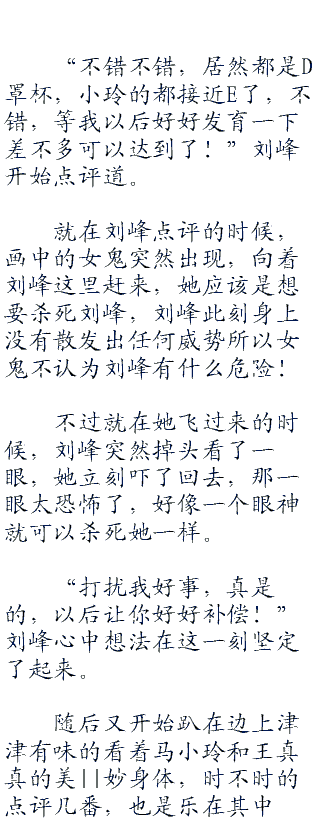 “不错不错，居然都是D
罩杯，小玲的都接近E了，不
错，等我以后好好发育一下
差不多可以达到了！”刘峰
开始点评道。
就在刘峰点评的时候，
画中的女鬼突然出现，向着
刘峰这里赶来，她应该是想
要杀死刘峰，刘峰此刻身上
没有散发出任何威势所以女
鬼不认为刘峰有什么危险！
不过就在她飞过来的时
候，刘峰突然掉头看了一
眼，她立刻吓了回去，那一
眼太恐怖了，好像一个眼神
就可以杀死她一样。
“打扰我好事，真是
的，以后让你好好补偿！”
刘峰心中想法在这一刻坚定
了起来。
随后又开始趴在边上津
津有味的看着马小玲和王真
真的美||妙身体，时不时的
点评几番，也是乐在其中